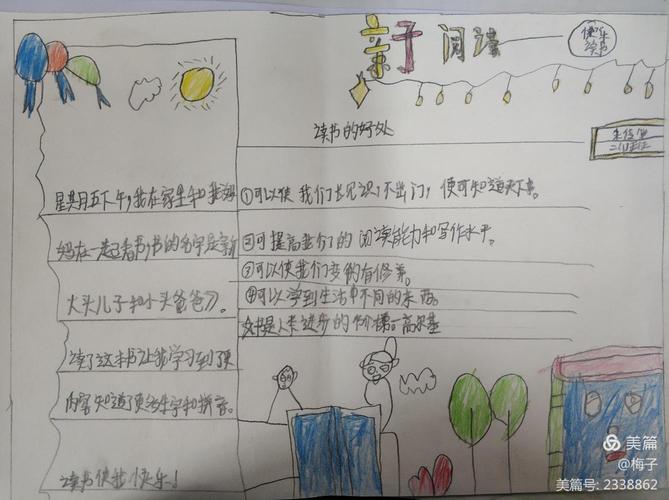 亲子阅读
快乐读书
读书的好处
星期五下午,我在家里和我妈
妈在一起看书,书的名字是新
大头儿子和小头爸爸》。
读了这本书让我学习到了
内容知道了更多生字和拼音。
读书使我快乐!
①可以使我们长见识,不出门,便可知道天下事。
②可提高我们的阅读能力和写作水平。
③可以使我们变的有修养。
④可以学到生活中不同的东西。
书是人类进步的阶梯。高尔基
美篇
@梅子
美篇号: 2338862